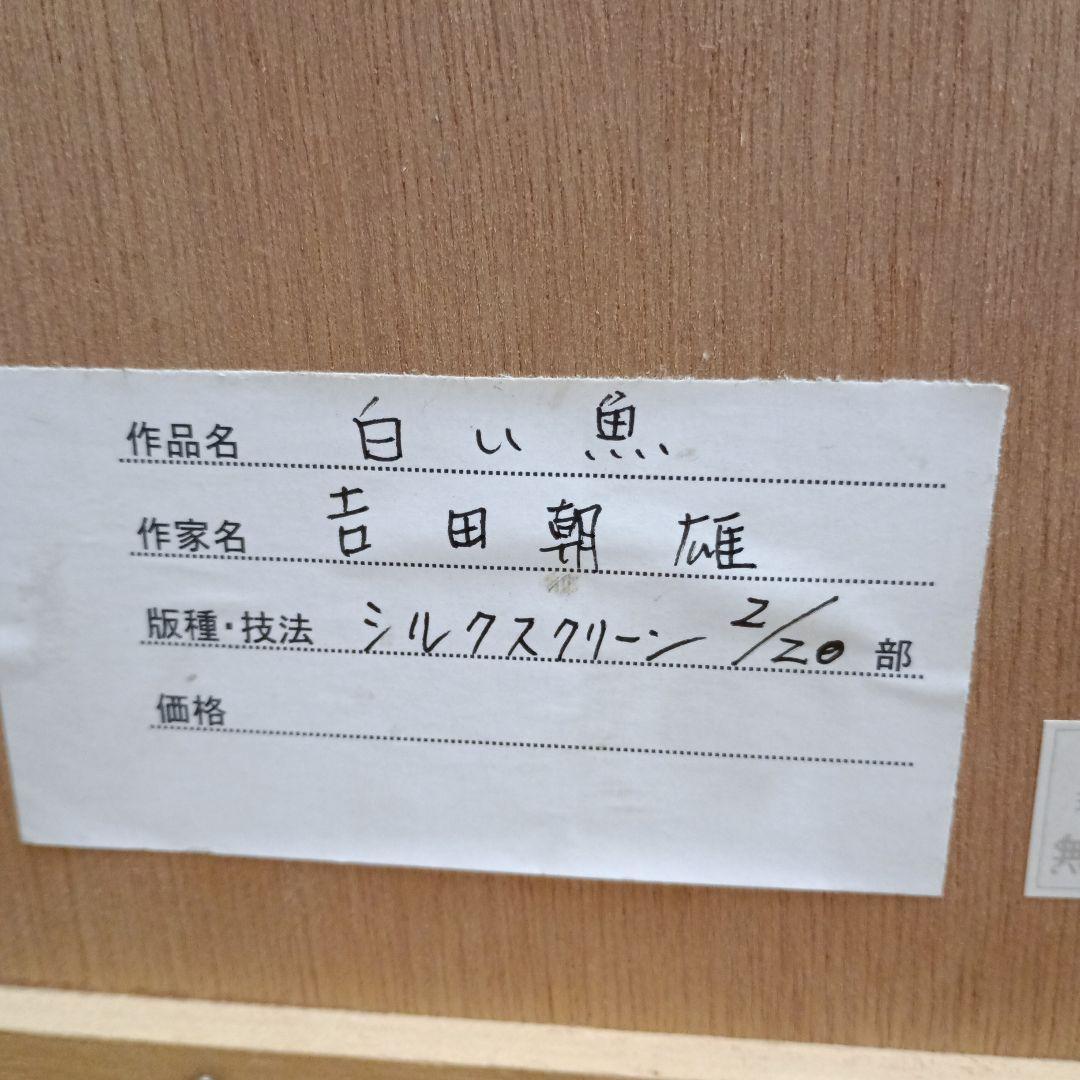 作品名 白い魚
作家名 吉田朝雄
版種・技法 シルクスクリーン 2/20 部
価格
無